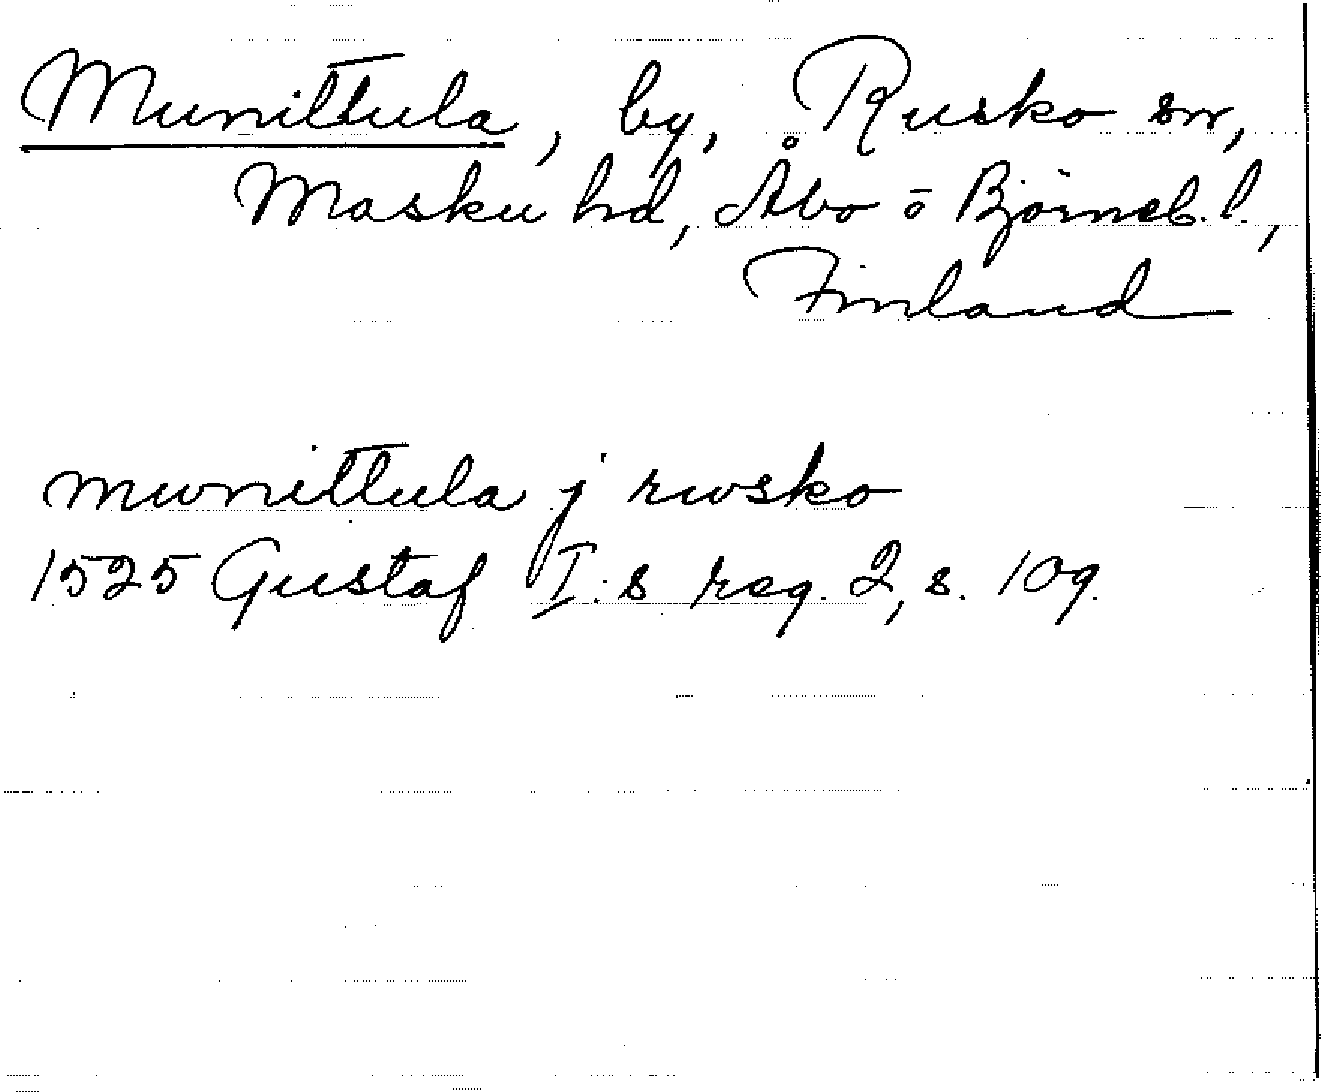 Munittula, by, Rusko sn,
Masku hd, Åbo o Björneb. l.,
Finland
mwnittula j rwsko
1525 Gustaf I:s reg. 2, s. 109.